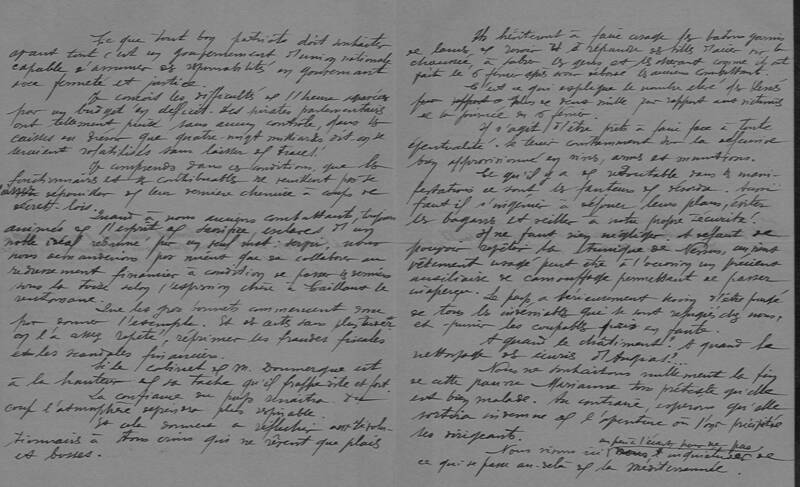 Ce que tout bon patriote doit souhaiter
avant tout c'est un gouvernement d'union nationale
capable d'assumer ses responsabilités en gouvernant
avec fermeté et justice.
On conçoit les difficultés de l'heure
par un budget en déficit. Des pirates parlementaires
ont tellement puisé sans aucun contrôle, dans les
caisses que quatre vingt milliards dit-on se
seraient volatilisés sans laisser de traces!
On comprend dans ces conditions, que les
fonctionnaires et les contribuables ne veuillent pas se
dépouiller de leur dernière chemise à coups de
décrets-lois.
Quant à nous anciens combattants, toujours
animés de l'esprit de sacrifice, esclaves d'un
noble idéal résumé par un seul mot: servir, nous
nous ne demandons pas mieux que de collaborer au
redressement financier à condition de passer les derniers
sous la toise selon l'expression chère à Caillaux le
Que les gros bonnets commencent donc
par donner l'exemple. Et et certes sans plus tarder
on l'a assez répété, réprimer les fraudes fiscales
et les scandales financiers.
Si le cabinet de M. Doumergue est
à la hauteur de sa tâche qu'il frappe vite et fort.
La confiance du pays renaîtra. Du
coup l'atmosphère deviendra plus respirable
et cela donnera à réfléchir aux révolu-
tionnaires à tous crins qui ne rêvent que plaies
et bosses.
Ils hésiteront à faire usage de bâtons garnis
de lames de rasoir et à répandre des billes d'acier sur la
chaussée, à sabrer les gens et les chevaux comme ils ont
fait le 6 février après avoir débordé les anciens combattants.
C'est ce qui explique le nombre élevé des blessés
plus de deux mille par rapport aux victimes
de la journée du 6 février.
Il s'agit d'être prêts à faire face à toute
éventualité. Se tenir constamment sur la défensive
bien approvisionné en vivres, armes et munitions.
Ce qu'il y a de redoutable dans les mani-
festations ce sont les fauteurs de désordre. Aussi
faut il s'ingénier à déjouer leurs plans, éviter
les bagarres et veiller à notre propre sécurité.
Il ne faut rien négliger et défaut de
pouvoir revêtir la tunique de Nessus, un vieux
vêtement usagé peut être à l'occasion un précieux
auxiliaire de camouflage permettant de passer
inaperçu. Le pays a sérieusement besoin d'être purgé
de tous les indésirables qui se sont réfugiés chez nous,
et punir les coupables pris en faute.
A quand le châtiment! A quand le
nettoyage des écuries d'Augias?!
Nous ne souhaitons nullement la fin
de cette pauvre Marianne sous prétexte qu'elle
est bien malade. Au contraire, espérons qu'elle
sortira indemne de l'aventure où l'ont précipitée
ses dirigeants.
un peu à l'écart pour ne pas
Nous vivons ici nous inquiéter de
ce qui se passe au-delà de la méditerranée.